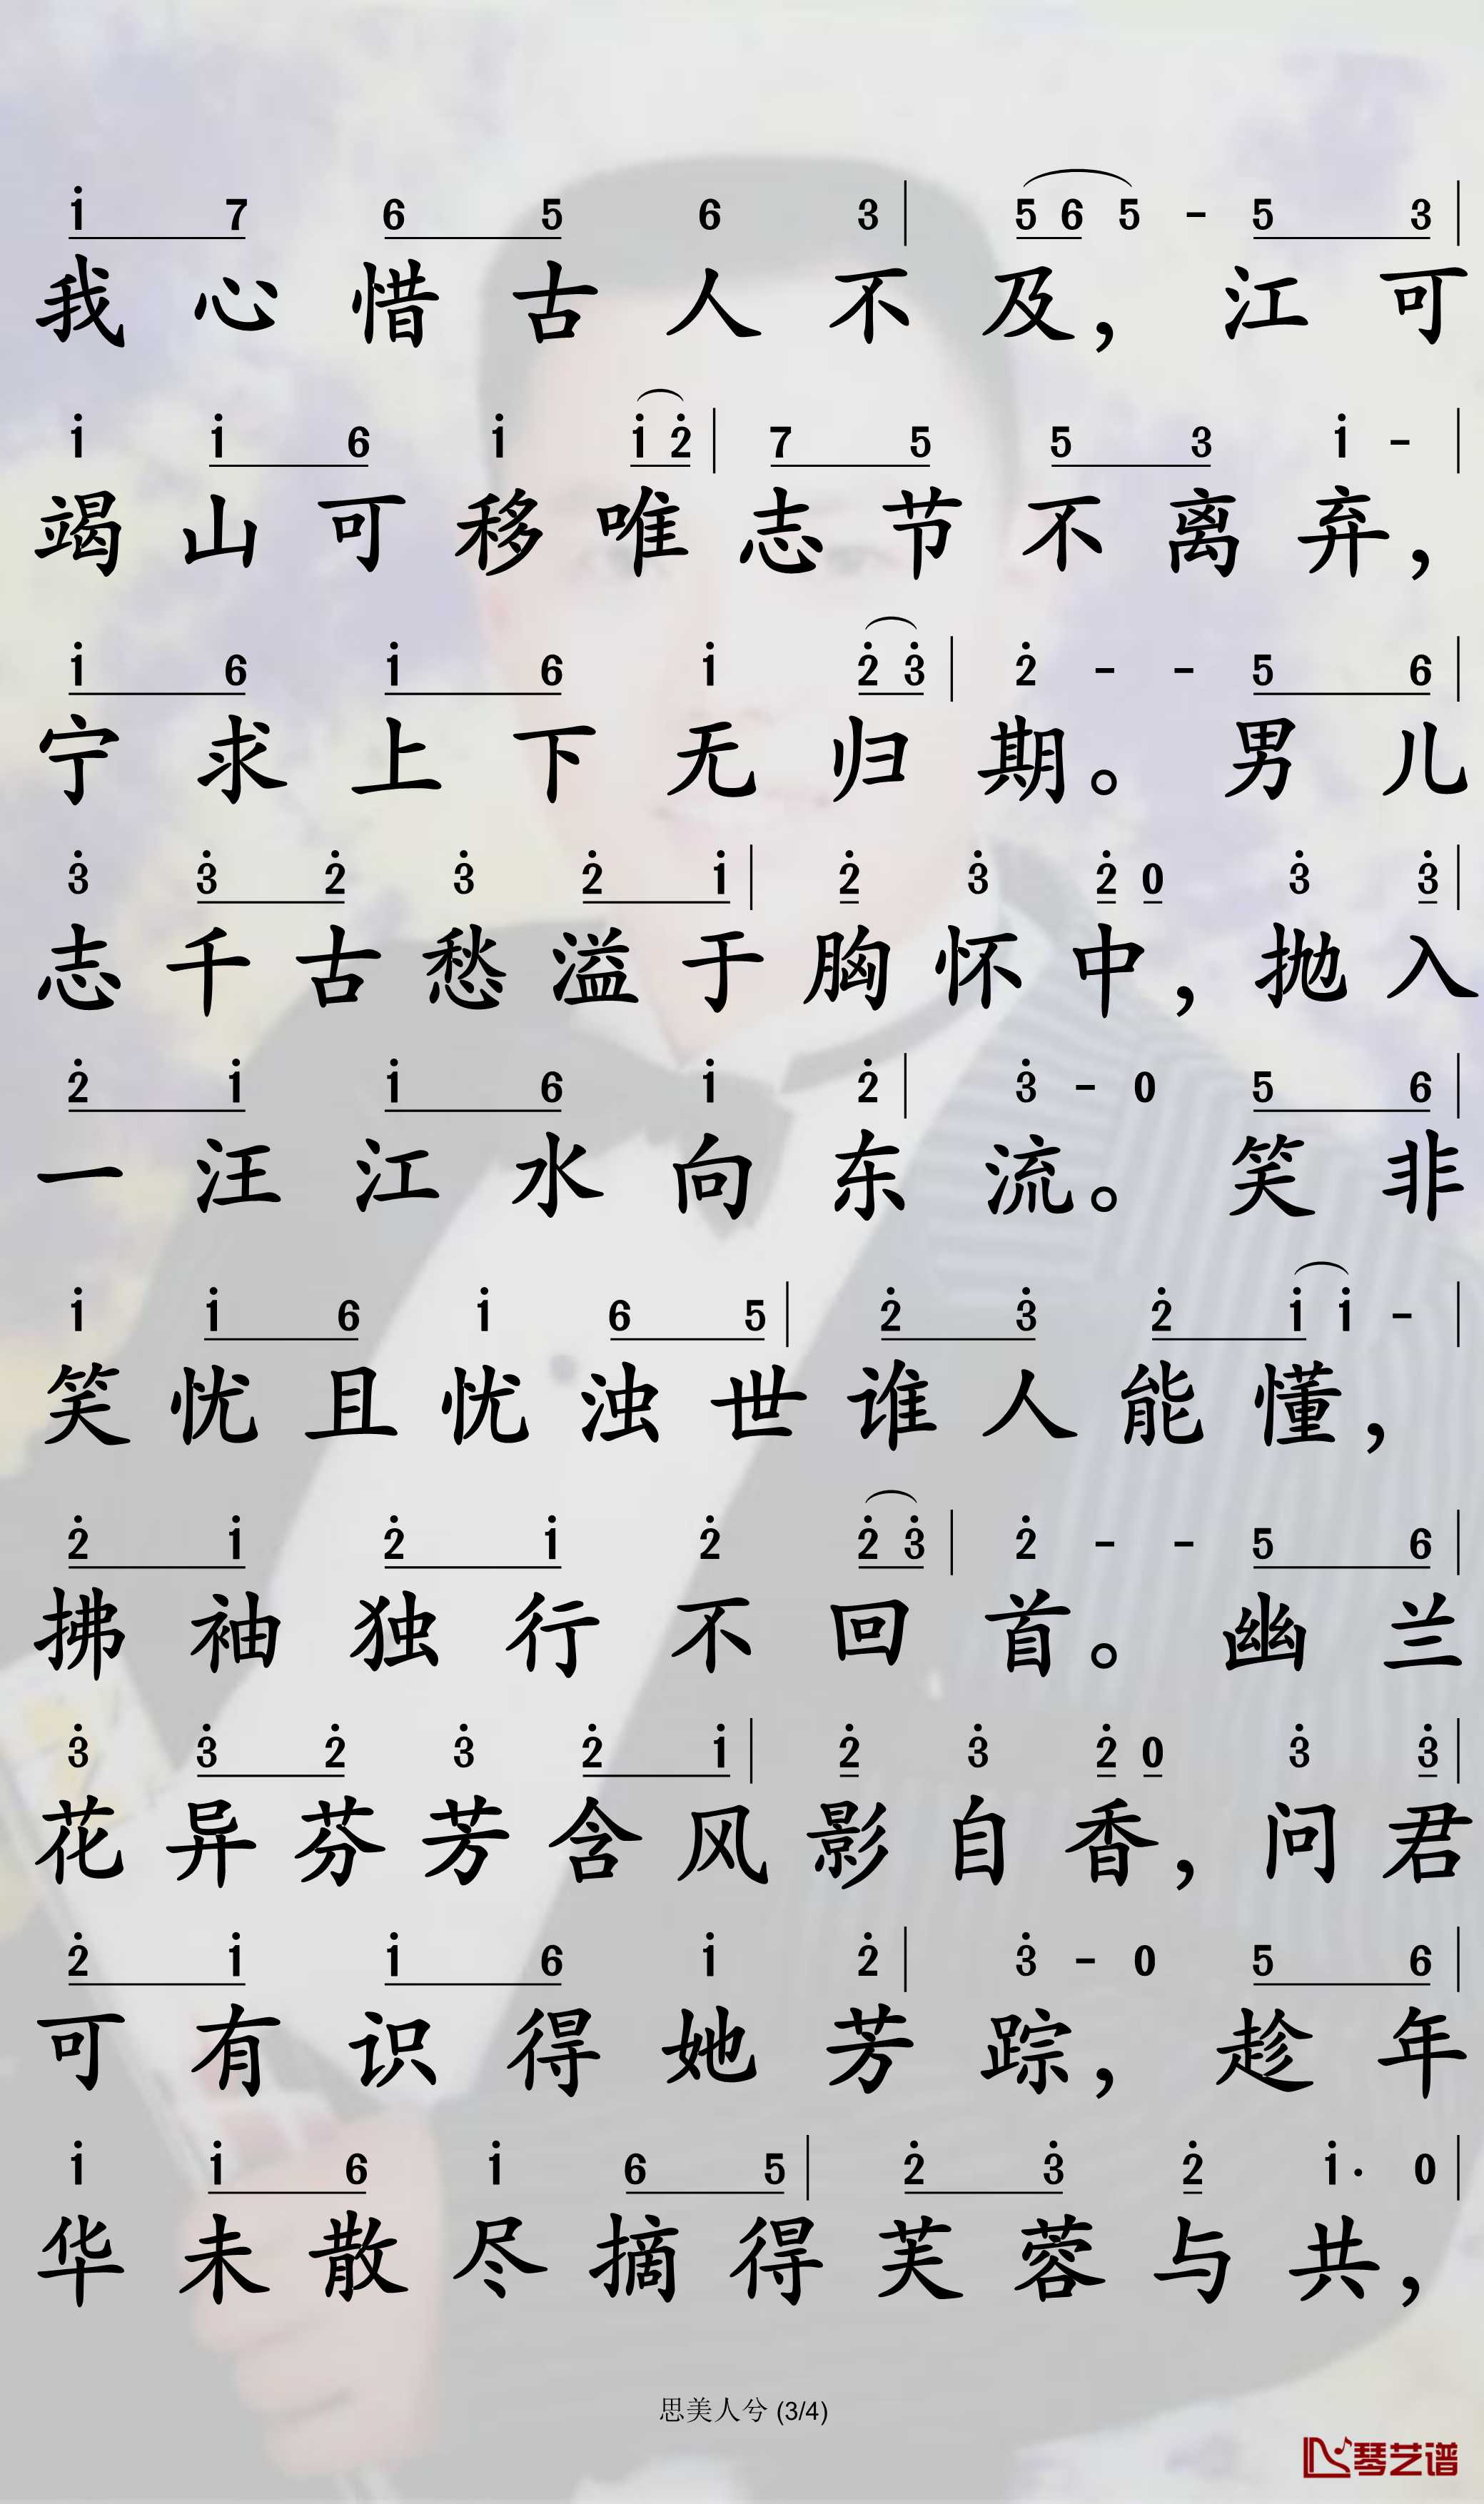 i 7 6 5 6 3 | 5 6 5 - 5 3 |
我心惜古人不及，江可
i i 6 i i 2 | 7 5 5 3 i - |
竭山可移唯志节不离弃，
i 6 i 6 i 2 3 | 2 - - 5 6 |
宁求上下无归期。男儿
3 3 2 3 2 i | 2 3 2 0 3 3 |
志千古愁溢于胸怀中，抛入
2 i i 6 i 2 | 3 - 0 5 6 |
一汪江水向东流。笑非
i i 6 i 6 5 | 2 3 2 i i - |
笑忧且忧浊世谁人能懂，
2 i 2 i 2 2 3 | 2 - - 5 6 |
拂袖独行不回首。幽兰
3 3 2 3 2 i | 2 3 2 0 3 3 |
花异芬芳含风影自香，问君
2 i i 6 i 2 | 3 - 0 5 6 |
可有识得她芳踪，趁年
i i 6 i 6 5 | 2 3 2 i· 0 |
华未散尽摘得芙蓉与共，
思美人兮 (3/4)
琴艺谱